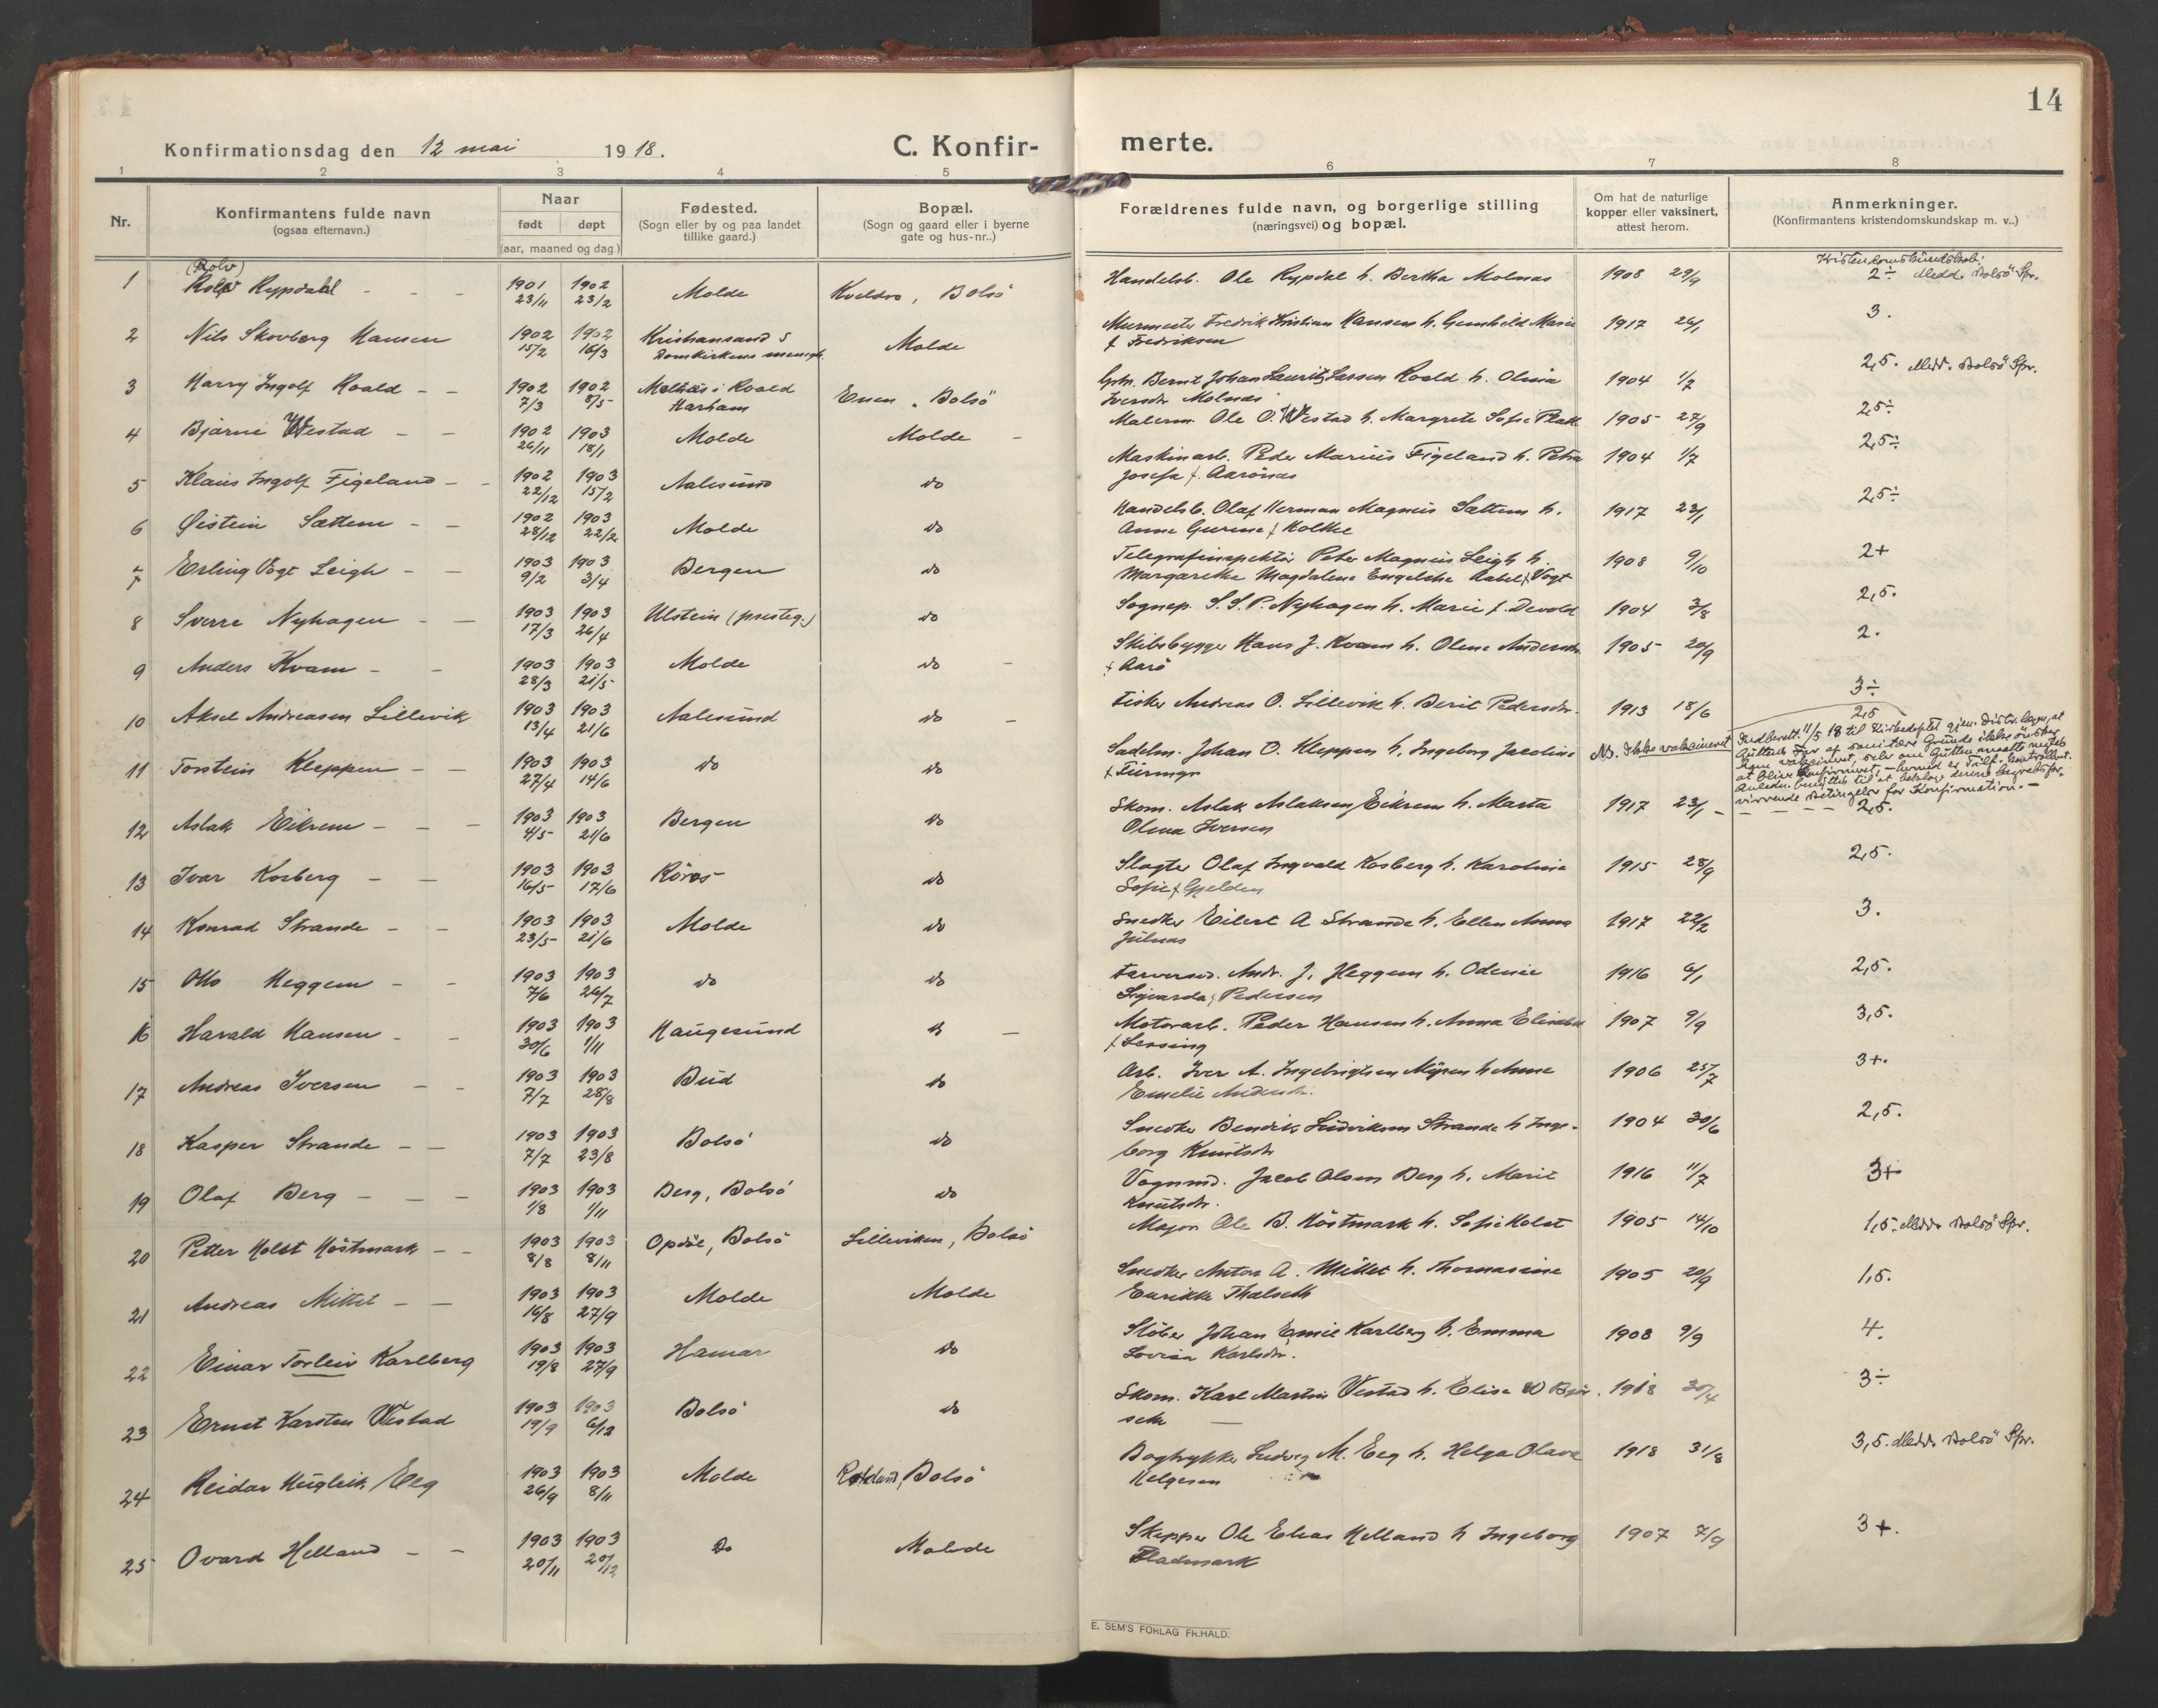 14
Konfirmationsdag den 12 mai 1918.
C. Konfir-merte.
1 2 3 4 5 6 7 8
Nr.
Konfirmantens fulde navn
(ogsaa efternavn.)
Naar
født døpt
(aar, maaned og dag)
Fødested.
(Sogn eller by og paa landet
tillike gaard.)
Bopæl.
(Sogn og gaard eller i byerne
gate og hus-nr..)
Forældrenes fulde navn, og borgerlige stilling
(næringsvei) og bopæl.
Om hat de naturlige
kopper eller vaksinert,
attest herom.
Anmerkninger.
(Konfirmantens kristendomskundskap m. v..)
Kristendomskundskab:
(Rolv)
1 Rolf Rypdahl - - 1901 23/11 1902 23/2 Molde Bolsö Handelsb. Ole Rypdal h. Bertha Molnas 1908 29/9 2÷ Medd. Bolsö Spr.
2 Nils Skovborg Hansen 1902 15/2 1902 16/3 Kristiansand S Molde Murmester Fredrik Kristian Hansen h. Gunhild Marie 1917 26/1 3.
Domkirkens menigh. f Fredriksen
3 Harry Ingolf Roald - - 1902 7/3 1902 8/5 Roald Bolsö Bernt Johan Lauritz Lassen Roald h. Olivia 1904 1/7 2,5. Medd. Bolsö Spr.
Harham Molnes
4 Bjarne Westad - - 1902 26/11 1903 18/1 Molde Molde - Malerm. Ole O. Westad h. Margrete Sofie 1905 27/9 2,5÷
5 Klaus Ingolf Figeland - - 1902 22/12 1903 15/2 Aalesund do Maskinarb. Peder Marius Figeland h. Petra 1904 1/7 2,5÷
Josefa f. Aarönes
6 Øistein Sættem - - 1902 28/12 1903 22/2 Molde do Handelsb. Olaf Herman Magnus Sættem h. 1917 23/1 2,5÷
Anne Gurine f
7 Erling Vogt Leigh - - 1903 9/2 1903 3/4 Bergen do Telegrafinspektör Peter Magnus Leigh h. 1908 9/10 2+
Margarethe Magdalene Engelche Aabel f Vogt
8 Sverre Nyhagen - - 1903 17/3 1903 26/4 Ulstein (presteg.) do Sognep. S. S. P. Nyhagen h. Marie f. Devold 1904 3/8 2,5.
9 Anders Kvam - - 1903 28/3 1903 21/5 Molde do - Skibsbygger Hans J. Kvam h. Oline Andersdtr. 1905 20/9 2.
f Aarö
10 Aksel Andreasen Lillevik 1903 13/4 1903 21/6 Aalesund do - Fisker Andreas O. Lillevik h. Berit Pedersdtr. 1913 18/6 3÷
11 Torstein Kleppen - - 1903 27/4 1903 14/6 do do Sadelm. Johan O. Kleppen h. Ingeborg Jacobine NB. Ikke vakcineret 2,5
Indberett. 11/5 18 til Kirkedeptet gjen. Distr.lægen, at
Guttens Far af sanitære Grunde ikke önsker
ham vakcineret, selv om Gutten maatte negtes
at blive konfirmeret,
12 Aslak Eikrem - - - 1903 4/5 1903 21/6 Bergen do Skom. Aslak Aslaksen Eikrem h. Marta 1917 23/1 - - - - 2,5.
Olina Iversen
13 Ivar Kosberg - - 1903 16/5 1903 17/6 Röros do Slagter Olaf Ingvald Kosberg h. Karoline 1915 28/9 2,5.
Sofie f Gjelden
14 Konrad Strande - - 1903 23/5 1903 21/6 Molde do Snedker Eilert A Strande h. Ellen Anna 1917 22/2 3.
Julnes
15 Otto Heggem - - 1903 7/6 1903 26/7 do do Andr. J. Heggem h. Odenie 1916 6/1 2,5.
Sigvarda f Pedersen
16 Harald Hansen - - 1903 30/6 1903 1/11 Haugesund do - Motorarb. Peder Hansen h. Anna Elisabet 1907 9/9 3,5.
17 Andreas Iversen - - 1903 7/7 1903 28/8 Bud do Arb. Iver A. Ingebrigtsen Myren h Anne 1906 25/7 3+.
Emelie Andersdtr.
18 Kasper Strande - - 1903 7/7 1903 23/8 Bolsö do Snedker Bendrik Ludviksen Strande h Inge- 1904 30/6 2,5.
borg Knutsdtr
19 Olaf Berg - - - 1903 1/8 1903 1/11 Berg, Bolsö do Vognmd. Jacob Olsen Berg h. Marit 1916 11/7 3+
Knutsdtr.
20 Petter Holst Höstmark - - 1903 8/8 1903 8/11 Opdöl, Bolsö Lilleviken, Bolsö Major Ole B. Höstmark h. Sofie Holst 1905 14/10 1,5. Medd. Bolsö Spr.
21 Andreas Mittet - - 1903 16/8 1903 27/9 Molde Molde Snedker Anton A. Mittet h. Thomasine 1905 20/9 1,5.
Enrikke Thalseth
22 Einar Torleiv Karlberg 1903 19/8 1903 27/9 Hamar do Stöber Johan Emil Karlberg h. Emma 1908 9/9 4.
Lovisa Karlsdtr.
23 Ernst Karsten Westad 1903 19/9 1903 6/12 Bolsö do Skom. Karl Martin Westad h. Elise 1918 30/4 3÷
24 Reidar Hugleik Eeg 1903 26/9 1903 8/11 Molde Bolsö Bogtrykker Ludvig M. Eeg h. Helga Olava 1918 31/8 3,5. Medd. Bolsö Spr.
Helgesen
25 Ovard Helland - - 1903 20/11 1903 20/12 Do Molde Skipper Ole Elias Helland h Ingeborg 1907 7/9 3+.
Fladmark
E. SEM'S FORLAG FR.HALD.